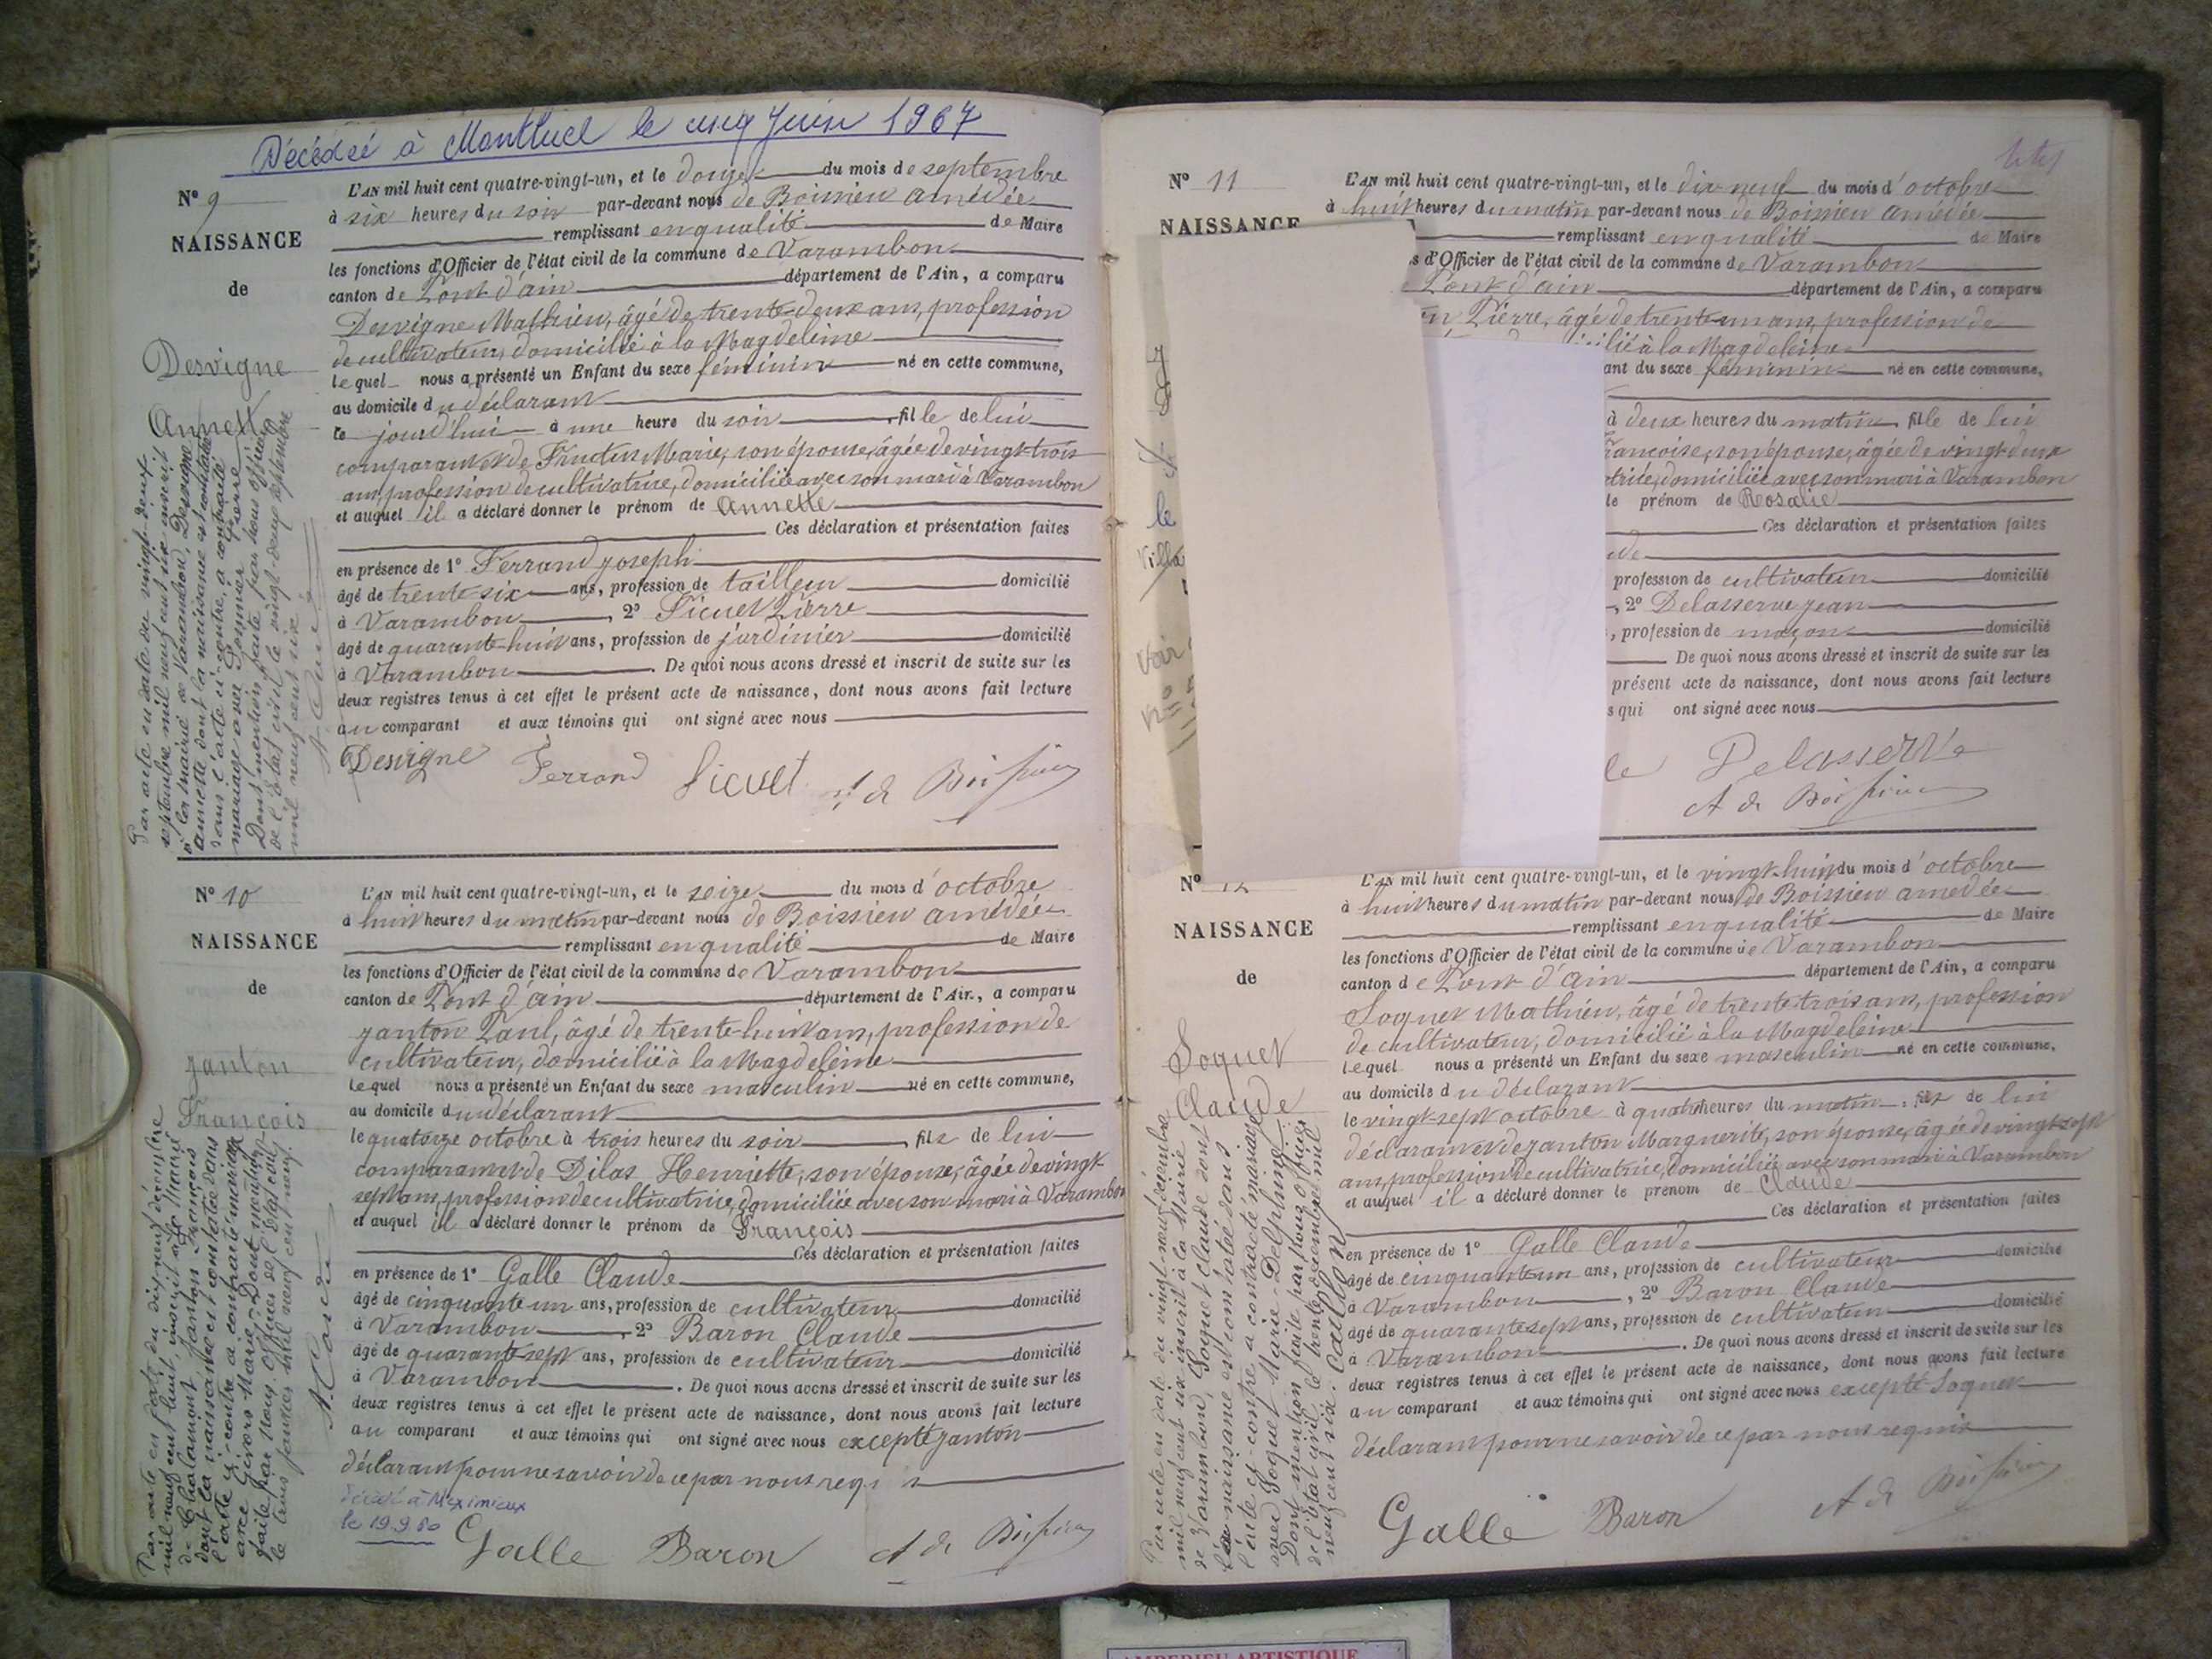 Décédée à Montluel le cinq Juin 1967
N° 9
NAISSANCE
de
Desvigne
Annette
L'AN mil huit cent quatre-vingt-un, et le douze du mois de septembre
à six heures du soir par-devant nous de Boissieu amédée
remplissant en qualité de Maire
les fonctions d'Officier de l'état civil de la commune de Varambon
canton de Pont d'ain département de l'Ain, a comparu
Desvigne Mathieu, âgé de trente-deux ans, profession
de cultivateur, domicilié à la Magdeleine
lequel nous a présenté un Enfant du sexe féminin né en cette commune,
au domicile du déclarant
le jourd'hui à une heure du soir, fille de lui
comparant et de Marie, son épouse, âgée de vingt-trois
ans, profession de cultivatrice, domiciliée avec son mari à Varambon
et auquel il a déclaré donner le prénom de Annette
Ces déclaration et présentation faites
en présence de 1° Ferrand joseph
âgé de trente-six ans, profession de tailleur domicilié
à Varambon, 2° Sicuet Pierre
âgé de quarante-huit ans, profession de jardinier domicilié
à Varambon. De quoi nous avons dressé et inscrit de suite sur les
deux registres tenus à cet effet le présent acte de naissance, dont nous avons fait lecture
au comparant et aux témoins qui ont signé avec nous
Desvigne Ferrand Sicuet A de Boissieu
Par acte en date du vingt-deux
septembre mil neuf cent six inscrit
à la mairie de Varambon, Desvigne
annette dont la naissance est constatée
dans l'acte ci-contre, a contracté
mariage avec Pierre
Dont mention faite par nous officier
de l'état civil le vingt-deux septembre
mil neuf cent six
N° 10
NAISSANCE
de
Janton
François
L'AN mil huit cent quatre-vingt-un, et le seize du mois d'octobre
à huit heures du matin par-devant nous de Boissieu amédée
remplissant en qualité de Maire
les fonctions d'Officier de l'état civil de la commune de Varambon
canton de Pont d'ain département de l'Ain, a comparu
janton Paul, âgé de trente-huit ans, profession de
cultivateur, domicilié à la Magdeleine
lequel nous a présenté un Enfant du sexe masculin né en cette commune,
au domicile du déclarant
le quatorze octobre à trois heures du soir, fils de lui
comparant et de Dilas Henriette, son épouse, âgée de vingt-
sept ans, profession de cultivatrice, domiciliée avec son mari à Varambon
et auquel il a déclaré donner le prénom de François
Ces déclaration et présentation faites
en présence de 1° Galle Claude
âgé de cinquante un ans, profession de cultivateur domicilié
à Varambon, 2° Baron Claude
âgé de quarante-sept ans, profession de cultivateur domicilié
à Varambon. De quoi nous avons dressé et inscrit de suite sur les
deux registres tenus à cet effet le présent acte de naissance, dont nous avons fait lecture
au comparant et aux témoins qui ont signé avec nous excepté janton
déclarant pour ne savoir de ce par nous requis
décédé à Meximieux
le 19.9.60
Galle Baron A de Boissieu
Par acte en date du dix neuf décembre
mil neuf cent huit inscrit à la Mairie
de Chalamont, Janton François
dont la naissance est constatée dans
l'acte ci-contre a contracté mariage
avec Givors Marie. Dont mention
faite par Nous, officier de l'état civil
le trois janvier mil neuf cent neuf.
N° 11
NAISSANCE
L'AN mil huit cent quatre-vingt-un, et le dix-neuf du mois d'octobre
à huit heures du matin par-devant nous de Boissieu amédée
remplissant en qualité de Maire
s d'Officier de l'état civil de la commune de Varambon
Pont d'ain département de l'Ain, a comparu
Pierre, âgé de trente-un ans, profession de
cilié à la Magdeleine
ant du sexe féminin né en cette commune,
à deux heures du matin, fille de lui
rançoise, son épouse, âgée de vingt-deux
trice, domiciliée avec son mari à Varambon
le prénom de Rosalie
Ces déclaration et présentation faites
profession de cultivateur domicilié
, 2° Delasserve jean
, profession de maçon domicilié
De quoi nous avons dressé et inscrit de suite sur les
présent acte de naissance, dont nous avons fait lecture
s qui ont signé avec nous
Delasserve
A de Boissieu
le
Villa
Voir
N°
N° 12
NAISSANCE
de
Soquet
Claude
L'AN mil huit cent quatre-vingt-un, et le vingt-huit du mois d'octobre
à huit heures du matin par-devant nous de Boissieu amédée
remplissant en qualité de Maire
les fonctions d'Officier de l'état civil de la commune de Varambon
canton de Pont d'ain département de l'Ain, a comparu
Soquet Mathieu, âgé de trente-trois ans, profession
de cultivateur, domicilié à la Magdeleine
lequel nous a présenté un Enfant du sexe masculin né en cette commune,
au domicile du déclarant
le vingt-sept octobre à quatre heures du matin, fils de lui
déclarant et de janton Marguerite, son épouse, âgée de vingt-sept
ans, profession de cultivatrice, domiciliée avec son mari à Varambon
et auquel il a déclaré donner le prénom de Claude
Ces déclaration et présentation faites
en présence de 1° Galle Claude
âgé de cinquante un ans, profession de cultivateur domicilié
à Varambon, 2° Baron Claude
âgé de quarante sept ans, profession de cultivateur domicilié
à Varambon. De quoi nous avons dressé et inscrit de suite sur les
deux registres tenus à cet effet le présent acte de naissance, dont nous avons fait lecture
au comparant et aux témoins qui ont signé avec nous excepté Soquet
déclarant pour ne savoir de ce par nous requis
Galle Baron A de Boissieu
Par acte en date du vingt-neuf décembre
mil neuf cent six inscrit à la Mairie
de Varambon, Soquet Claude dont
la naissance est constatée dans
l'acte ci-contre, a contracté mariage
avec Soquet Marie-Delphine.
Dont mention faite par nous officier
de l'état civil le trente décembre mil
neuf cent six.
AMBERIEU ARTISTIQUE